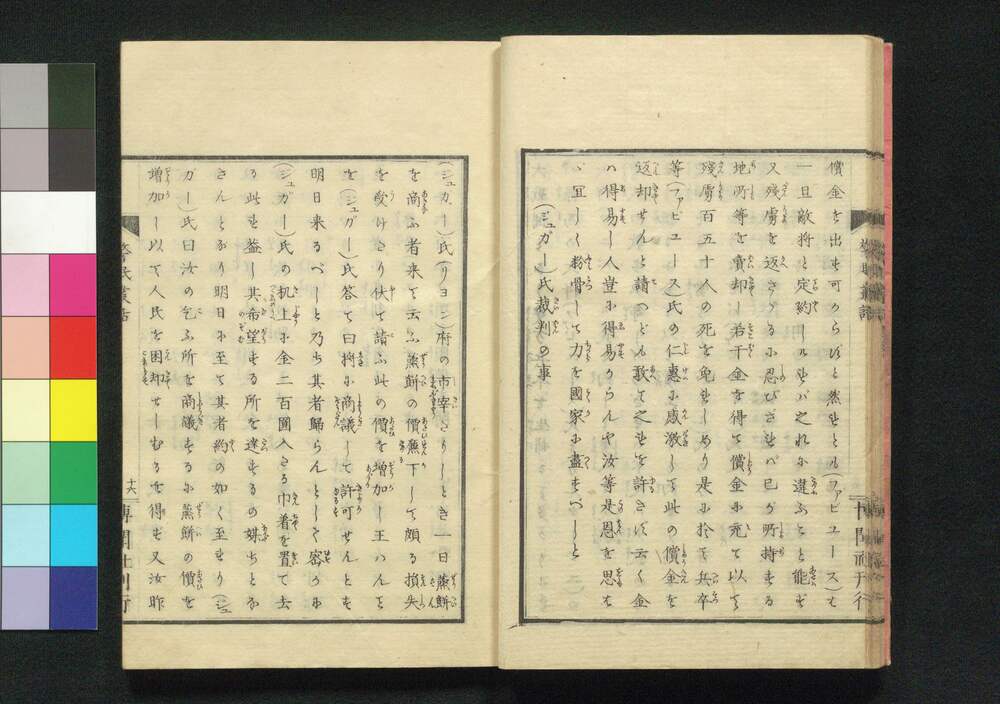 償金を出す可からずと然れども(ファビユース)も
一旦敵将と定約しぬれバ之れに違ふこと能はず
又残虜を返さゞるに忍びざれバ己が所持する
地所等を賣却し若干金を得て償金に充て以て
残虜百五十人の死を免れしめり是に於て兵卒
等(ファビユース)氏の仁惠に感激して此の償金を
返却せんと請へども敢て之れを許さず云く金
ハ得易し人豈に得易からんや汝等是恩を思はゞ
宜しく粉骨して力を國家に盡すべしと
(ジュガー)氏裁判の事
(ジュガー)氏(リヨン)府の市宰たりしとき一日蒸餅
を商ふ者来て云ふ蒸餅の價廉下して頗る損失
を受けたり伏て請ふ此の價を増加し玉ハんと
を(ジュガー)氏答て曰将に商議して許可せんとす
明日来るべしと乃ち其者歸らんとして窃かに
(ジュガー)氏の机上に金二百圓入たる巾着を置て去
る此れ蓋し其希望する所を達するの媒ちとな
さんとなり明日に至て其者約の如く至れり(ジュ
ガー)氏曰汝の乞ふ所を商議するに蒸餅の價を
増加し以て人民を困却せしむるを得ず又汝昨
十六
博聞社刊行